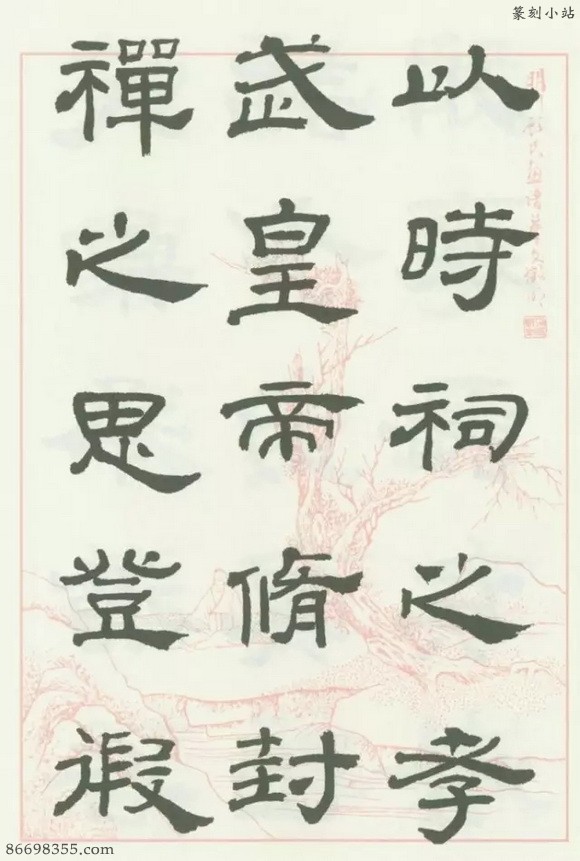 篆刻小站
以時祠之孝
武皇帝脩封
禪之思登徦
86698355.com